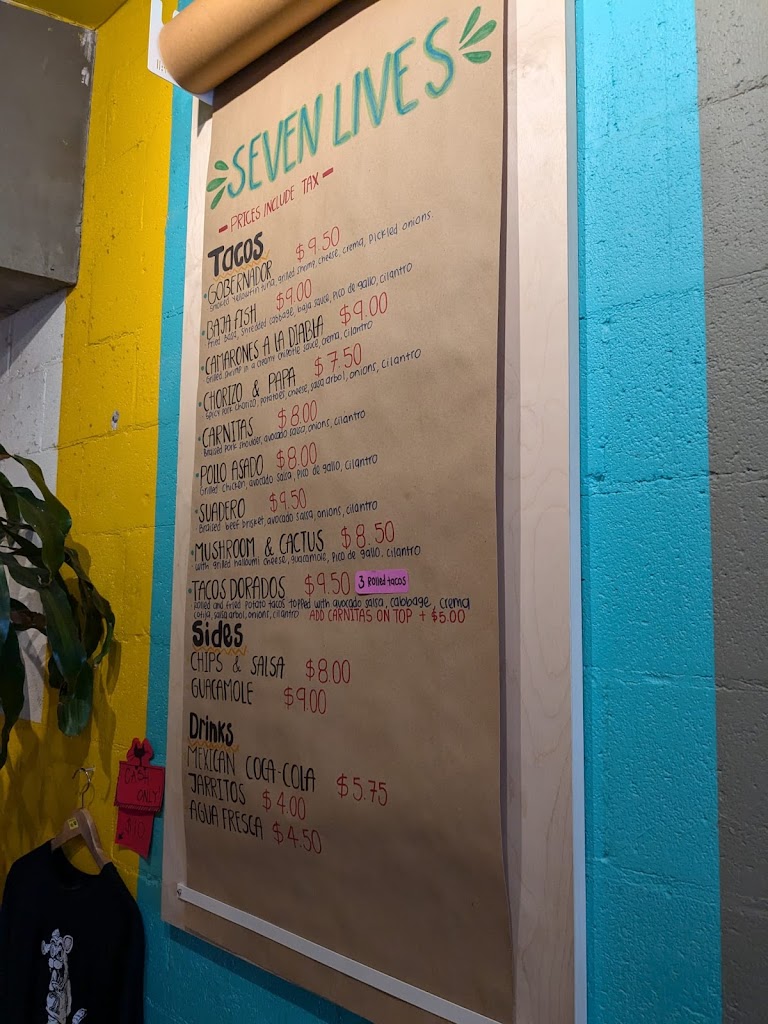 SEVEN LIVES
- PRICES INCLUDE TAX -
TACOS
• GOBERNADOR $9.50
Smoked yellowfin tuna, grilled shrimp, cheese, crema, pickled onions.
• BAJA FISH $9.00
Fried basa, shredded cabbage, baja sauce, pico de gallo, cilantro
• CAMARONES A LA DIABLA $9.00
Grilled shrimp in a creamy chipotle sauce, crema, cilantro
• CHORIZO & PAPA $7.50
Spicy pork chorizo, potatoes, cheese, salsa arbol, onions, cilantro
• CARNITAS $8.00
Braised pork shoulder, avocado salsa, onions, cilantro
• POLLO ASADO $8.00
Grilled chicken, avocado salsa, pico de gallo, cilantro
• SUADERO $9.50
Braised beef brisket, avocado salsa, onions, cilantro
• MUSHROOM & CACTUS $8.50
with grilled halloumi cheese, guacamole, pico de gallo, cilantro
• TACOS DORADOS $9.50 3 Rolled tacos
Rolled and fried potato tacos topped with avocado salsa, cabbage, crema
cotija, salsa arbol, onions, cilantro ADD CARNITAS ON TOP + $5.00
Sides
CHIPS & SALSA $8.00
GUACAMOLE $9.00
Drinks
MEXICAN COCA-COLA $5.75
JARRITOS $4.00
AGUA FRESCA $4.50
CASH
ONLY